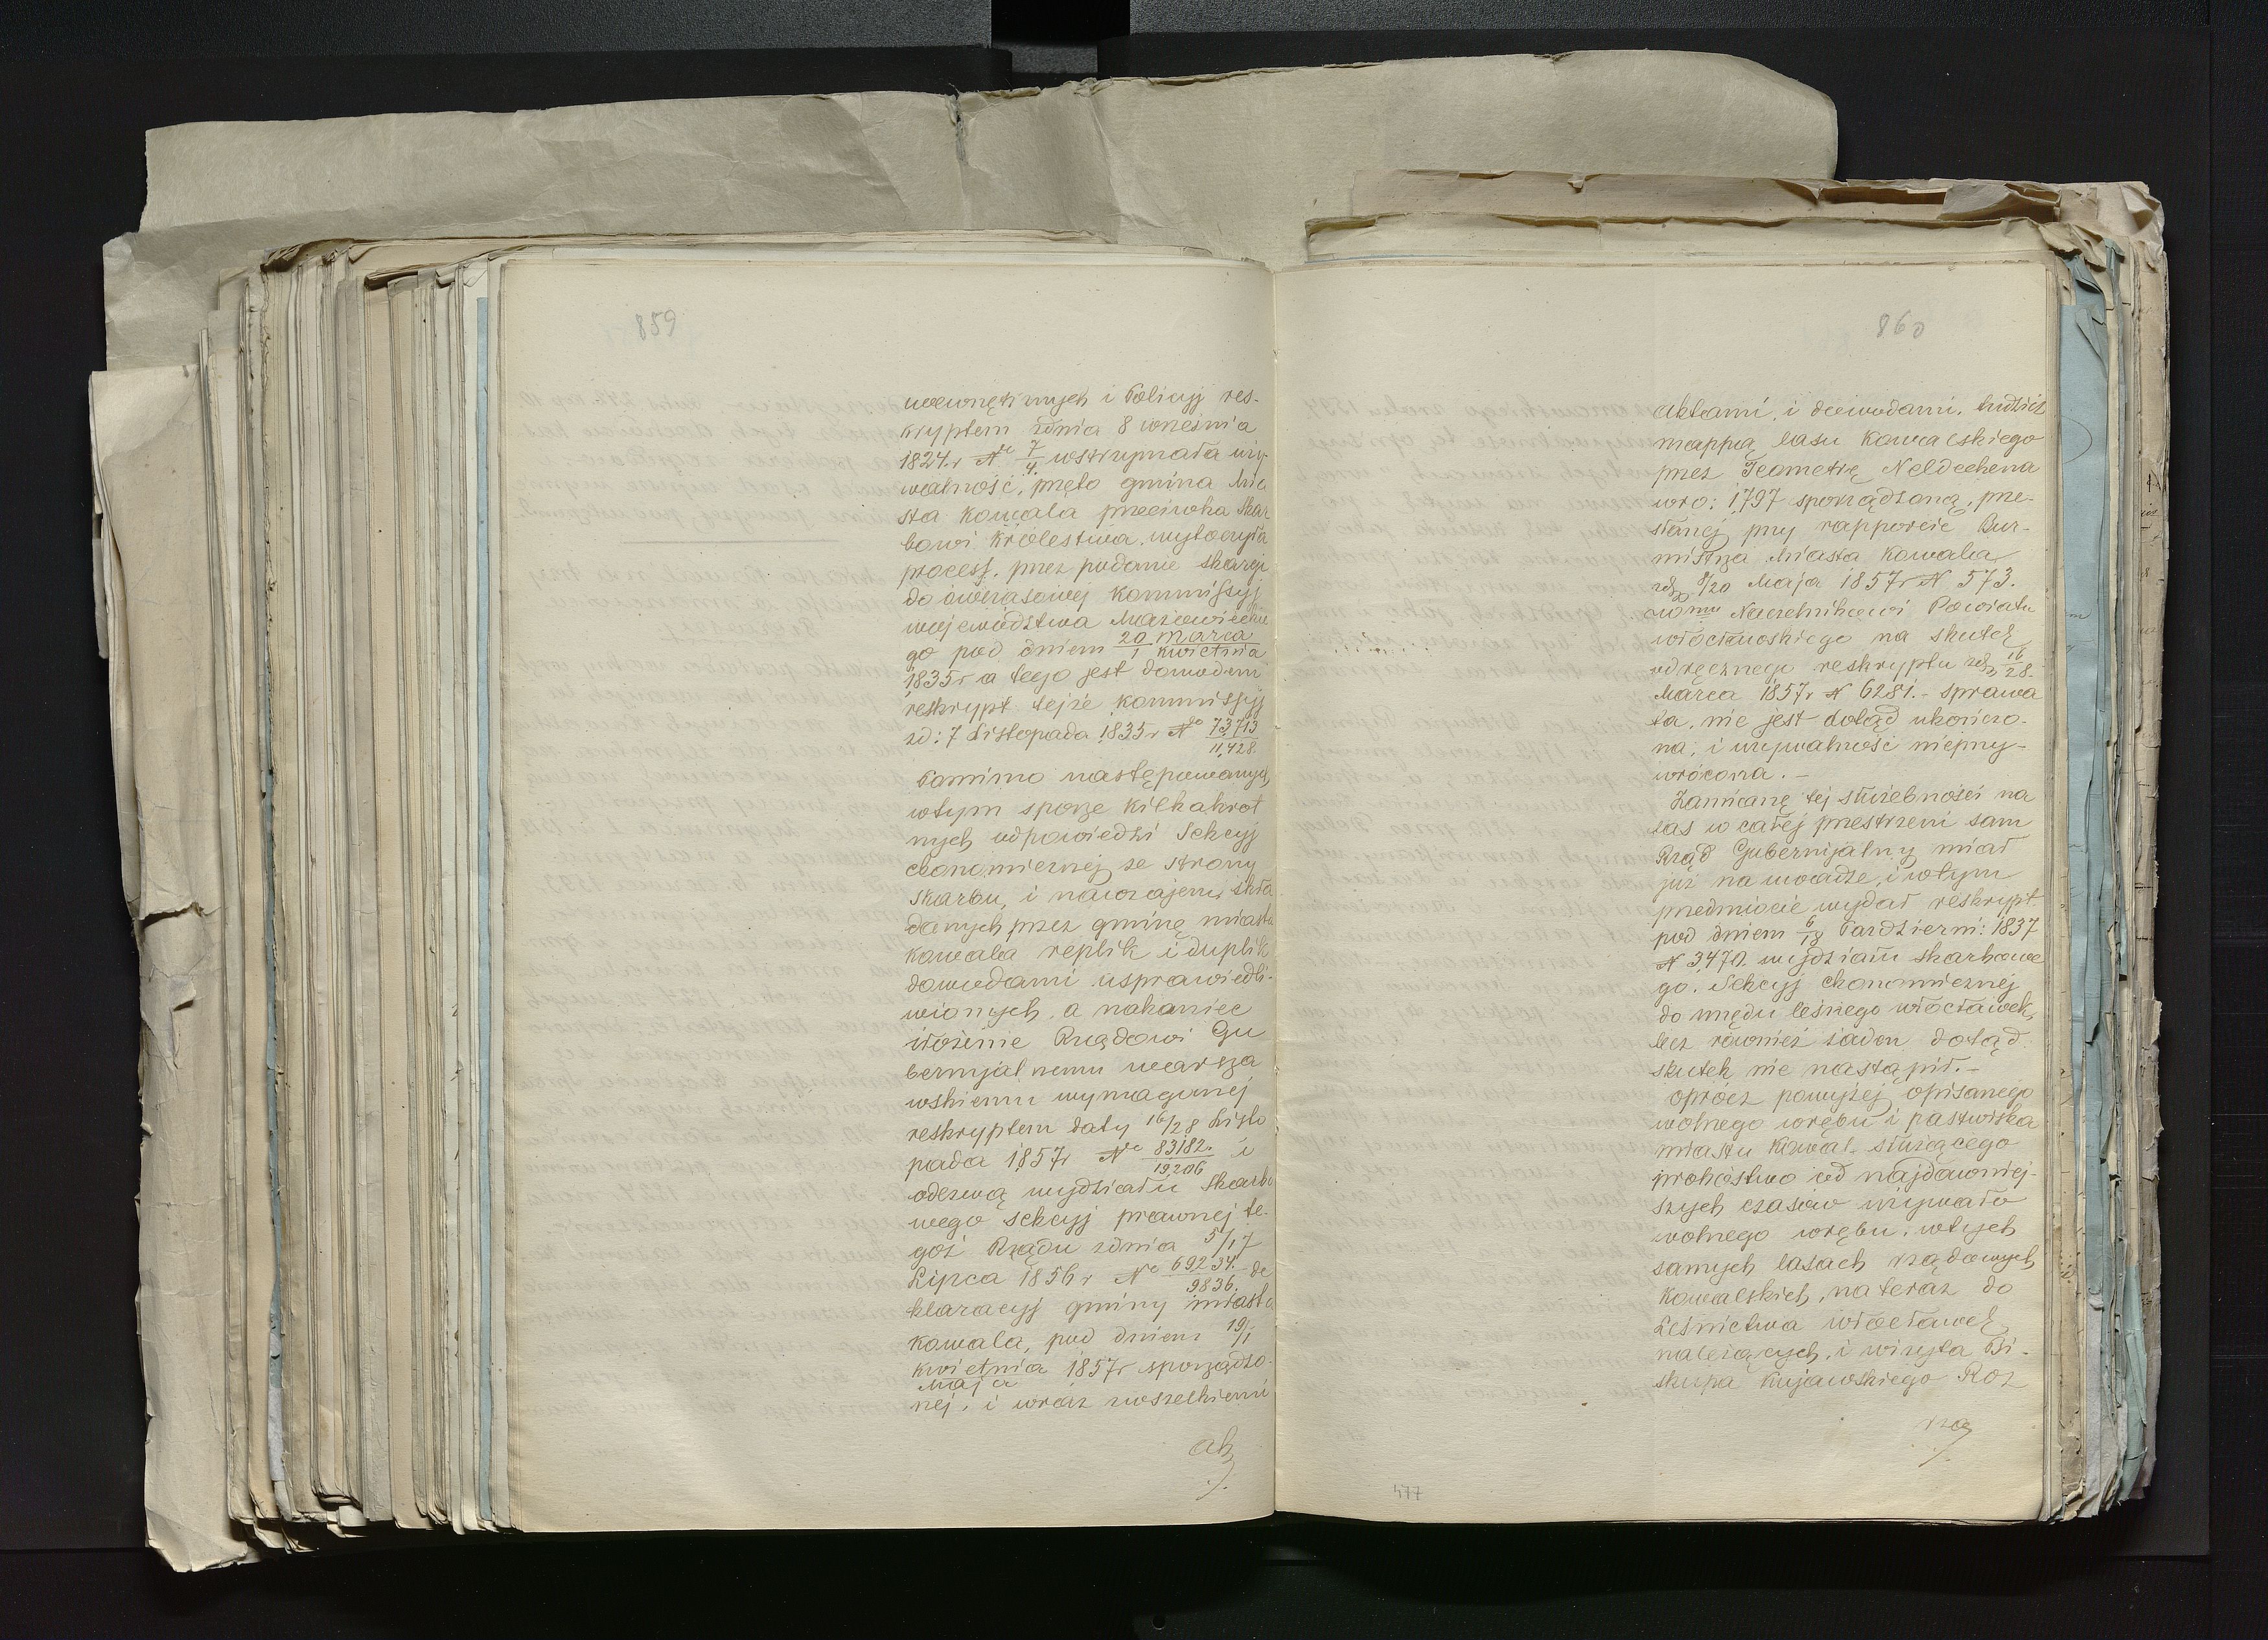 859
wewnętrznych i Policyj res-
kryptem zdnia 8 września
1824 r No 7/4. wstrzymała uży-
walność, przęto gmina Mia
sta Kowala przeciwko Skar
bowi Królestwa wytoczyła
process. przez podanie skargi
do ówczasowej Kommissyj
województwa Mazowieckie
go pod dniem 20 Marca / 1 Kwietnia
1835 r a tego jest dowodem
reskrypt tejże Kommissyj
zd: 7 Listopada 1835 r No 73713/11,428
Pomimo następowanych
wtym sporze kilkakrot
nych odpowiedzi Sekcyj
ekonomicznej ze strony
Skarbu, i nawzajem skła
danych przez gminę miasta
Kowala replik i duplik
dowodami usprawiedli-
wionych, a nakoniec
złożenie Rządowi Gu
bernijalnemu warsza
wskiemu wymaganej
reskryptem daty 16/28 Listo
pada 1857 r No 83182./19,206 i
odezwą wydziału Skarbo
wego sekcyj prawnej te-
goż Rządu zdnia 5/17
Lipca 1856 r No 69234./9836. de
klaracyj gminy miasta
Kowala, pod dniem 19/1
Kwietnia/Maja 1857 r sporządzo-
nej, i wraz zwszelkiemi
ak
860
aktami, i dowodami, tudzież
mappą lasu Kowalskiego
przez Jeometrę Neldechena
wro: 1797 sporządzoną, prze-
słanej przy rapporcie Bur-
mistrza Miasta Kowala
zd 8/20 Maja 1857 r N 573.
mu Naczelnikowi Powiatu
włocławskiego na skutek
odręcznego reskryptu zd 16/28.
Marca 1857 r N 6281.- sprawa
ta, nie jest dotąd ukończo-
na, i używalność nieprzy-
wrócona.-
Zamianę tej służebności na
las w całej przestrzeni sam
Rząd Gubernijalny miał
już na uwadze, i wtym
przedmiocie wydał reskrypt
pod dniem 6/18 Pazdzierni: 1837
N 3470 wydziału skarbowe
go. Sekcyj ekonomicznej
do urzędu leśnego włocławek,
lecz również żaden dotąd
skutek nie nastąpił.-
Oprócz powyżej opisanego
wolnego wrębu i pastwiska
miastu Kowal- służącego
probóstwo od najdawniej-
szych czasów używało
wolnego wrębu, wtych
samych lasach rządowych
Kowalskich, na teraz do
Leśnictwa włocławek
należących, i wizyta Bi-
skupa Kujawskiego Roz
ra
477